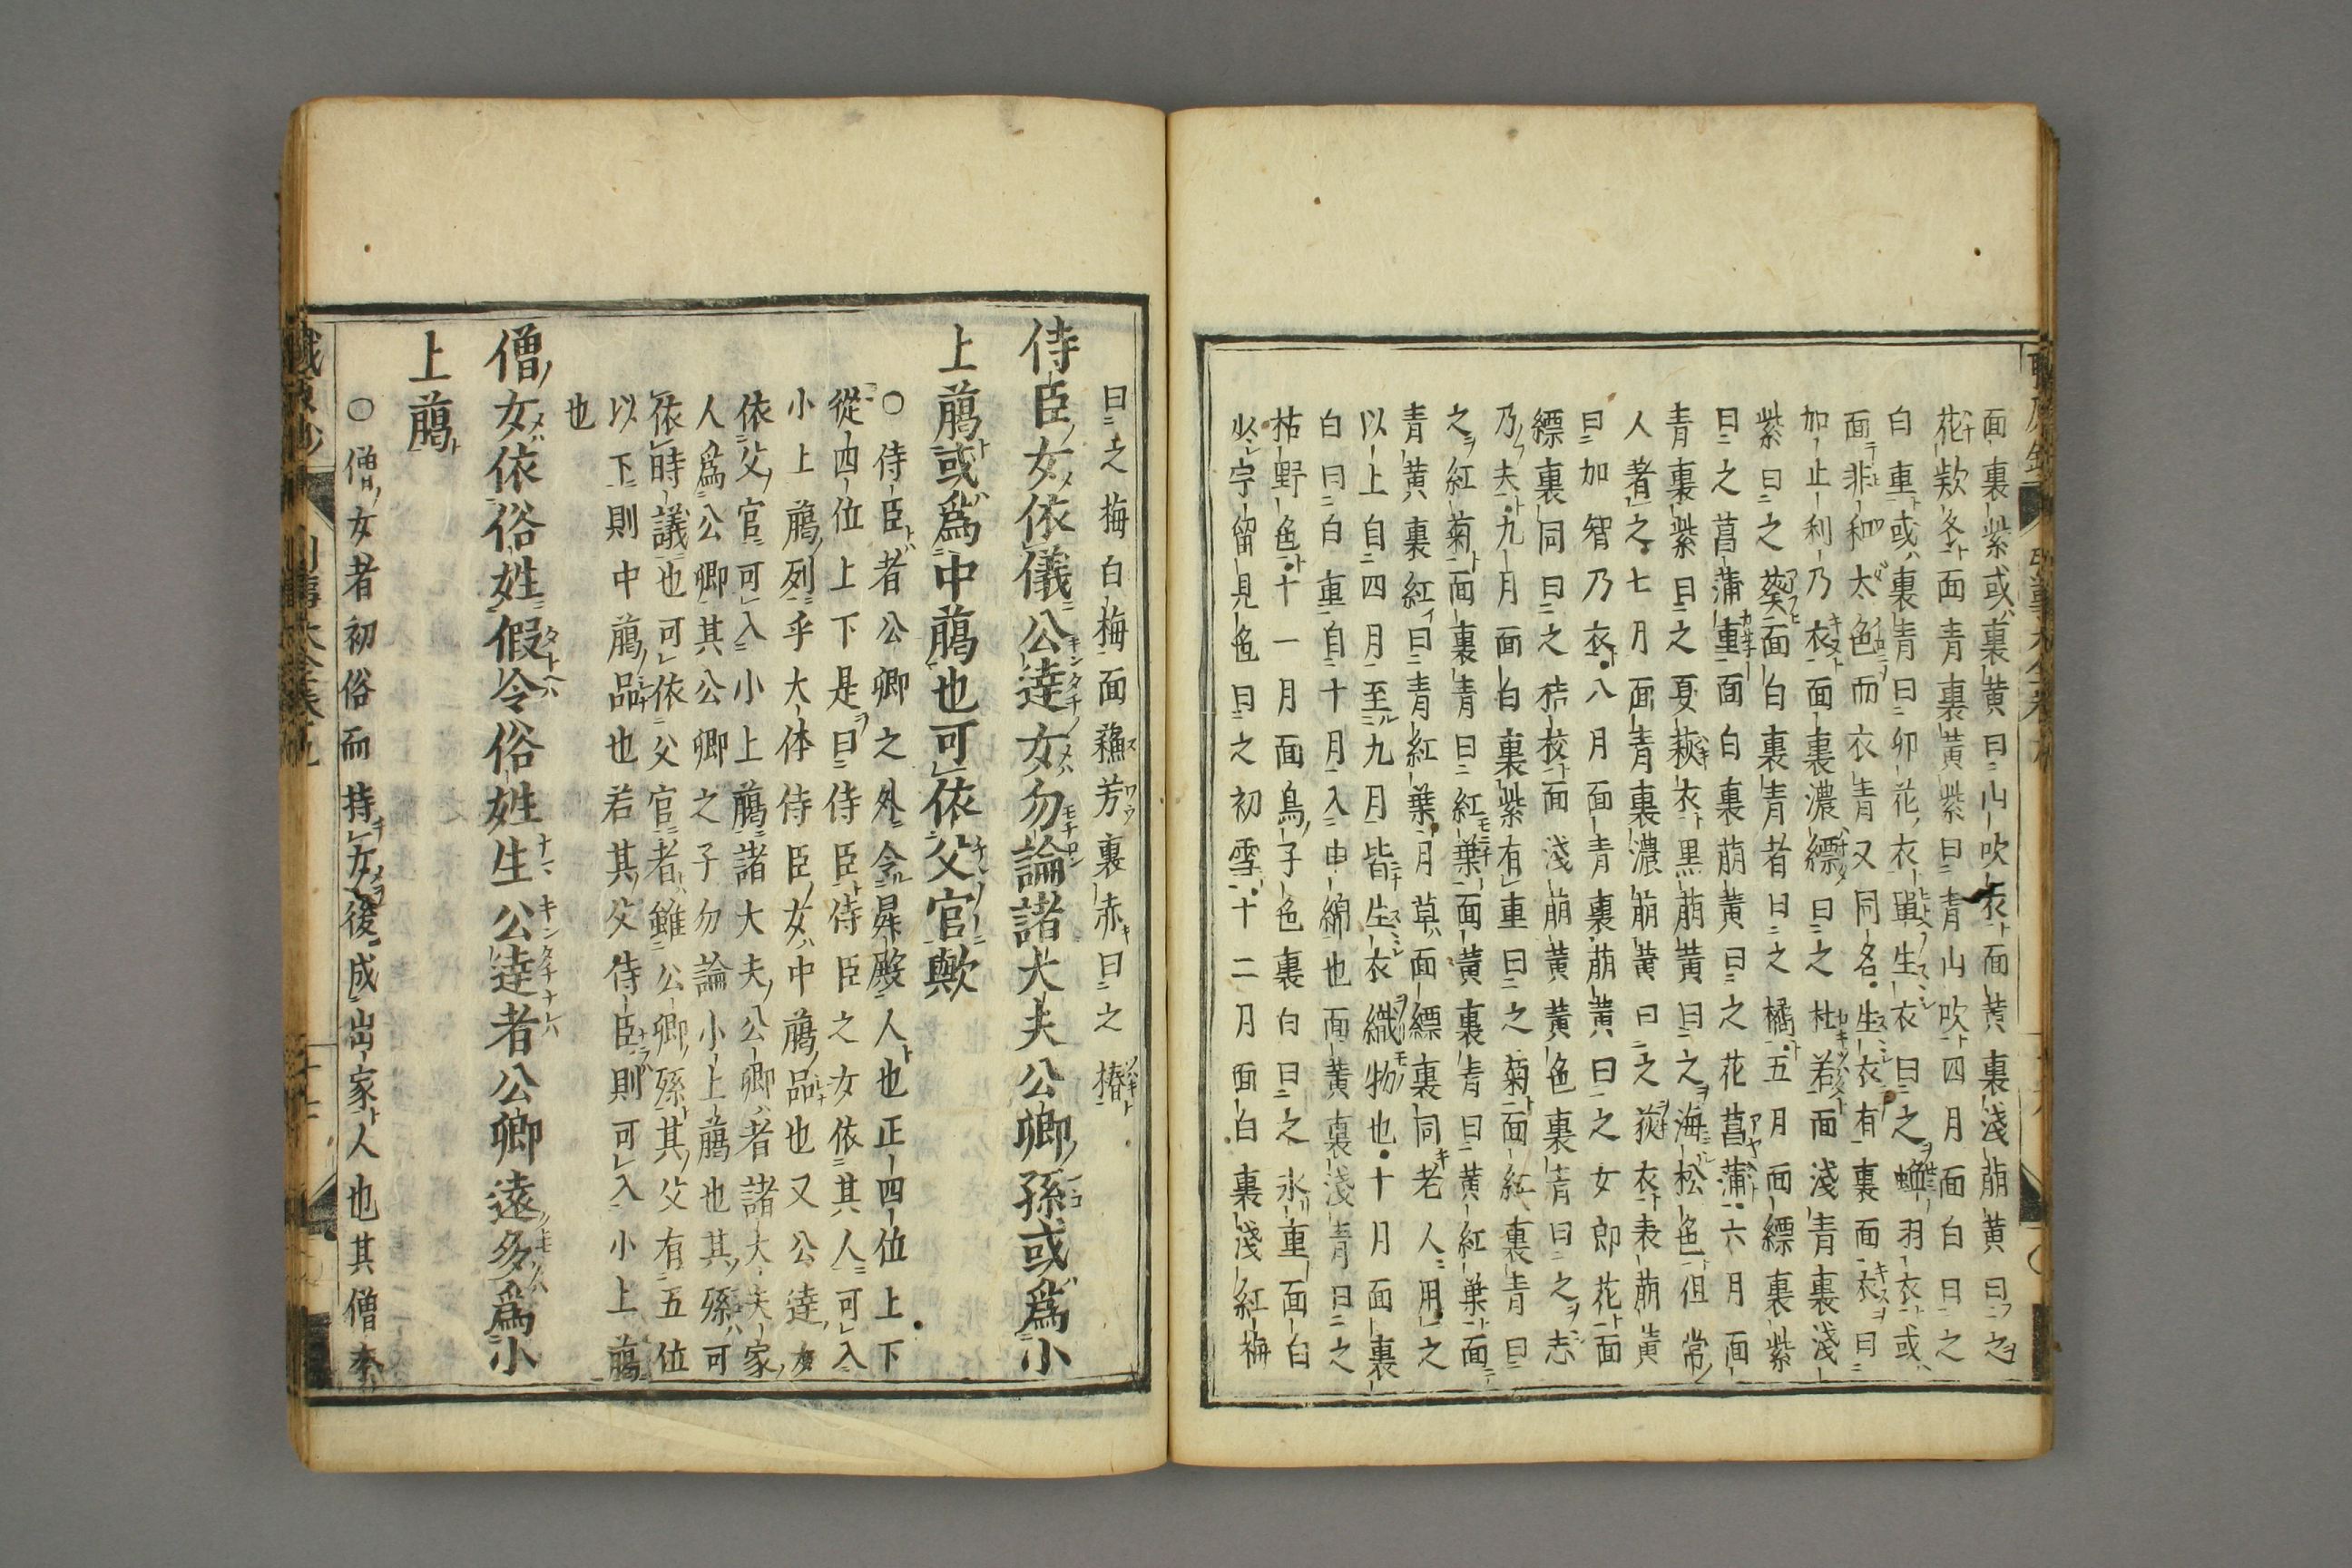 面裏紫或裏黄曰山吹衣面黄裏淺萠黄曰之
花欵冬面青裏黄紫曰青山吹四月面白曰之
白重或裏青曰卯花衣單生衣曰之蝉羽衣或
面非和太色而衣青又同名生衣有裏面衣曰
加止利乃衣面裏濃縹曰之杜若面淺青裏淺
紫曰之葵面白裏青者曰之橘五月面縹裏紫
曰之菖蒲重面白裏萠黄曰之花菖蒲六月面
青裏紫曰之夏萩衣黒萠黄曰之海松色但常
人者之七月面青裏濃萠黄曰之荻衣表萠黄
曰加智乃衣八月面青裏萠黄曰之女郎花面
縹裏同曰之桔梗面淺萠黄黄色裏青曰之志
乃夫九月面白裏紫有重曰之菊面紅裏青曰
之紅菊面裏青曰紅葉面黄裏青曰黄紅葉面
青黄裏紅曰青紅葉月草面縹裏同老人用之
以上自四月至九月皆生衣織物也十月面裏
白曰白重自十月入中綿也面黄裏淺青曰之
枯野色十一月面鳥子色裏白曰之氷重面白
裏留見色曰之初雪十二月面白裏淺紅梅
曰之梅白梅面蘓芳裏赤曰之椿
侍臣女依儀公達女勿論諸大夫公卿孫或爲小
上﨟或爲中﨟也可依父官歟
○侍臣者公卿之外令昇殿人也正四位上下
從四位上下是曰侍臣侍臣之女依其人可入
小上﨟列乎大体侍臣女中﨟品也又公達女
依父官可入小上﨟諸大夫公卿者諸大夫家
人爲公卿其公卿之子勿論小上﨟也其孫可
依時議也可依父官者雖公卿孫其父有五位
以下則中﨟品也若其父侍臣則可入小上﨟
也
僧女依俗姓假令俗姓生公達者公卿遠多爲小
上﨟
○僧女者初俗而持女後成出家人也其僧本